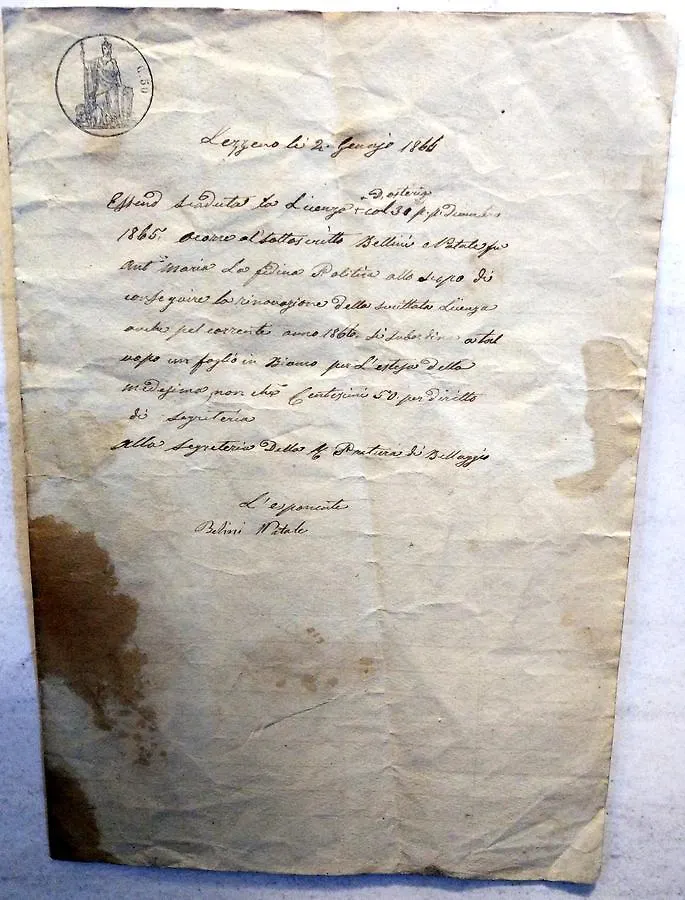 C. 50
Lezzeno li 2. Genajo 1866
D'osteria
Essend scaduta la Licenza + col 30 p.p. Dicembre
1865. ocorre al Sottoscritto Bellini Natale fu
Ant.º Maria La fedina Politica allo scopo di
conseguire la rinovazione della sucittata Licenza
anche pel corrente anno 1866. Si subordina a tal
uopo un foglio in Bianco per L'estesa della
medesima, non chè Centesimi 50 per diritto
di Segreteria
Alla Segreteria Della R. Pretura di Bellaggio
L'esponente
Belini Natale